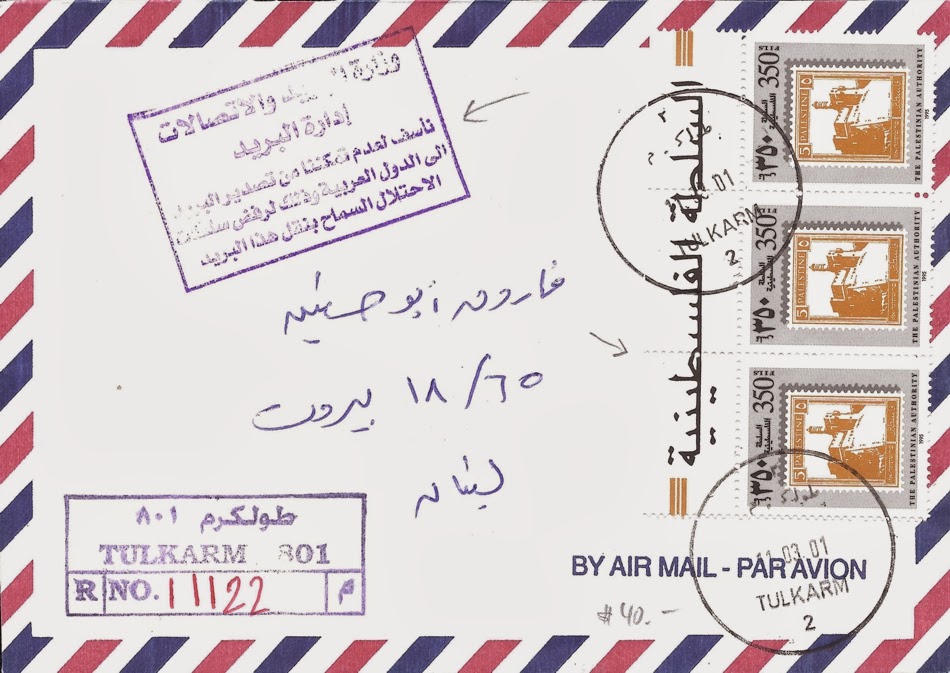 وزارة البريد والاتصالات
إدارة البريد
نأسف لعدم تمكننا من تصدير البريد
الى الدول العربية وذلك لرفض سلطات
الاحتلال السماح بنقل هذا البريد
السلطة الفلسطينية
350 FILS
٣٥٠
السلطة الفلسطينية
PALESTINE
5
THE PALESTINIAN AUTHORITY
1995
350 FILS
٣٥٠
السلطة الفلسطينية
PALESTINE
5
THE PALESTINIAN AUTHORITY
350 FILS
٣٥٠
السلطة الفلسطينية
PALESTINE
5
THE PALESTINIAN AUTHORITY
1995
01
TULKARM
2
فاروق ابو
١٨/٦٥ بيروت
لبنان
طولكرم ٨٠١
TULKARM 801
R NO. 11122 م
BY AIR MAIL - PAR AVION
11.03.01
TULKARM
2
#40.-